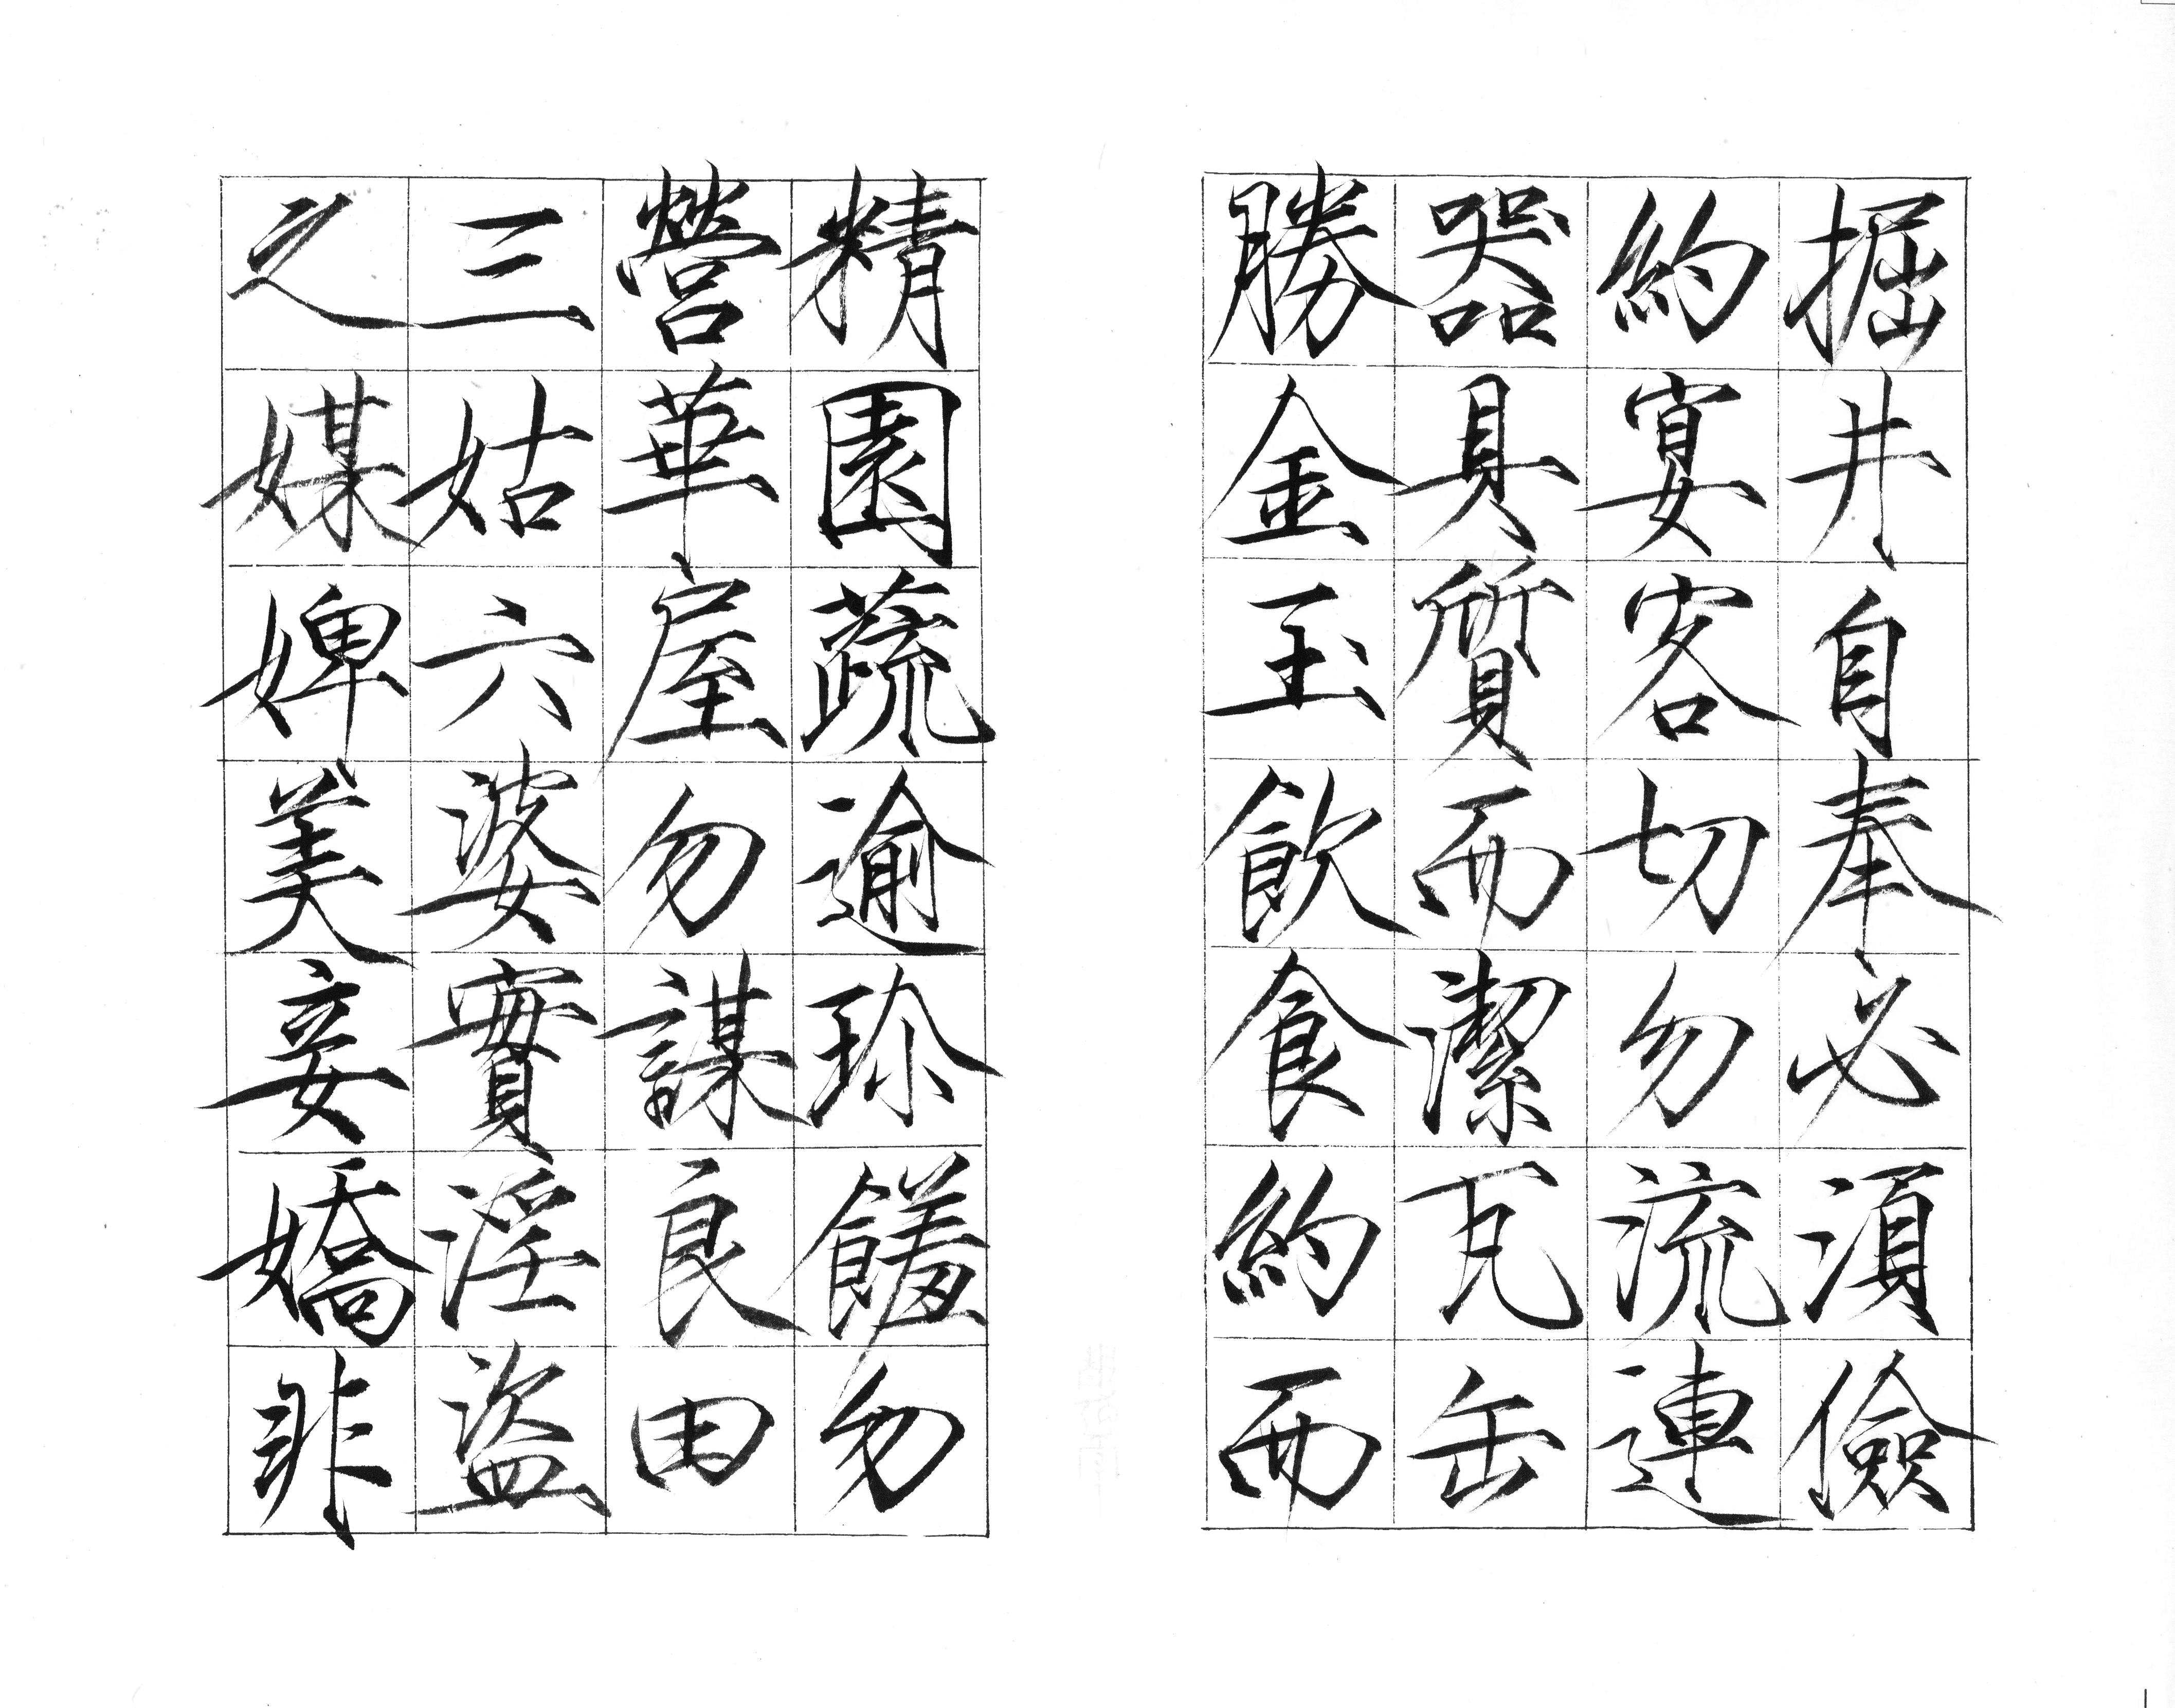 掘井自奉必須儉
約宴客切勿流連
器具質而潔瓦缶
勝金玉飲食約而
精園蔬逾珍饈勿
營華屋勿謀良田
三姑六婆實淫盜
之媒婢美妾嬌非